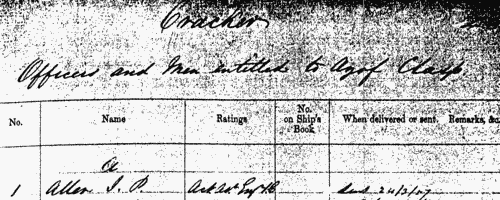 Cracker
Officers and Men entitled to Azof Clasp
No. Name Ratings No. on Ship's Book When delivered or sent. Remarks, &c.
a
1 Allen J. P. Sent 24/3/57